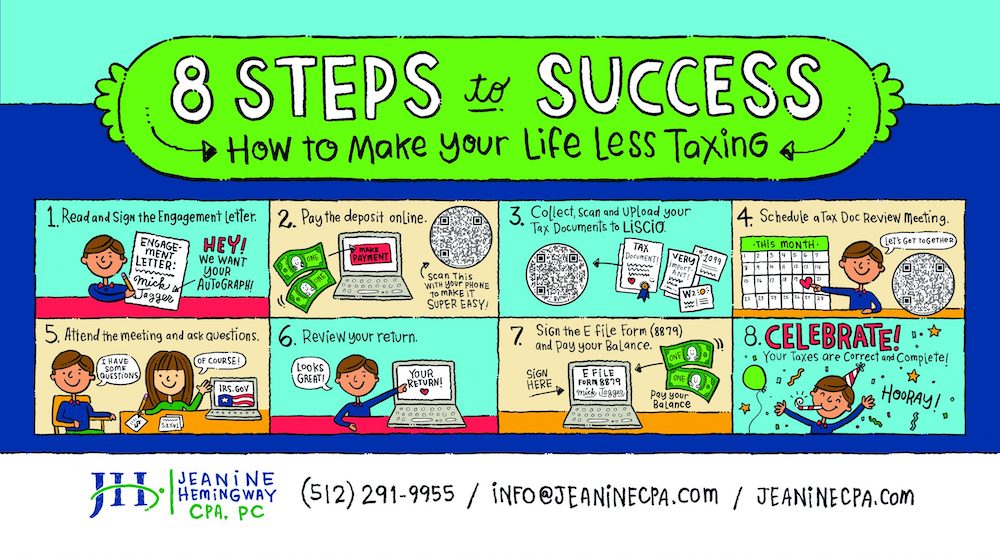 8 STEPS to SUCCESS
How to Make Your Life Less Taxing
1. Read and Sign the Engagement Letter.
ENGAGE-
MENT
LETTER:
Mick
Jagger
HEY!
WE WANT
YOUR
AUTOGRAPH!
2. Pay the deposit online.
ONE
ONE
MAKE
PAYMENT
SCAN THIS
WITH YOUR PHONE
TO MAKE IT
SUPER EASY!
3. Collect, Scan and Upload your
Tax Documents to LISCIO.
TAX
DOCUMENT!
VERY
IMPORT-
1099
W2
4. Schedule a Tax Doc Review Meeting.
THIS MONTH
Let's Get Together
5. Attend the meeting and ask questions.
I HAVE
SOME
QUESTIONS
OF COURSE!
IRS.GOV
6. Review your return.
LOOKS
GREAT!
YOUR
RETURN!
7. Sign the E file Form (8879)
and Pay your Balance.
SIGN
HERE
E FILE
FORM 8879
Mick Jagger
ONE
ONE
Pay your
Balance
8. CELEBRATE!
Your Taxes are Correct and Complete!
HOORAY!
JH
JEANINE
HEMINGWAY
CPA, PC
(512) 291-9955 / INFO@JEANINECPA.COM / JEANINECPA.COM